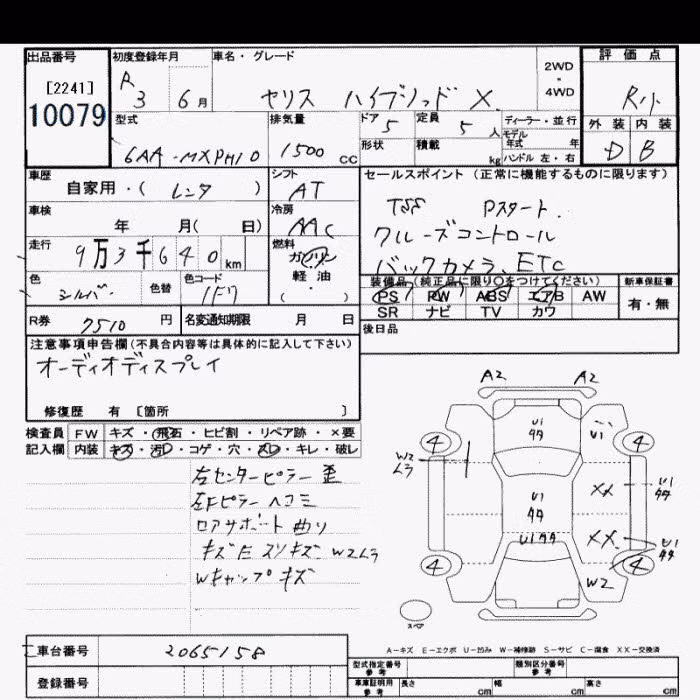 出品番号
[2241]
10079
初度登録年月
R3 6月
車名・グレード
ヤリス ハイブリッド X
2WD
・
4WD
評価点
R小
型式
6AA-MXPH10
排気量
1500 CC
ドア 5
形状
定員 5 人
積載 kg
ディーラー・並行
モデル
年式 年
ハンドル 左・右
外装 内装
D B
車歴
自家用・( レンタ )
シフト
AT
車検
年 月( 日)
冷房
AAC
走行
9万3千640km
燃料
ガソリン
軽油
( ・ )
色
シルバー
色替
色コード
1F7
R券 7510 円
名変通知期限 月 日
セールスポイント (正常に機能するものに限ります)
TSS Pスタート.
クルーズコントロール
バックカメラ、ETC
装備品 (純正品に限り○をつけてください)
新車保証書
PS PW ABS エアB AW
有・無
SR ナビ TV カワ
後日品
注意事項申告欄(不具合内容等は具体的に記入して下さい)
オーディオディスプレイ
修復歴 有 [箇所 ]
検査員 FW キズ・飛石・ヒビ割・リペア跡・×要
記入欄 内装 キズ・汚レ・コゲ・穴・スレ・キレ・破レ
左センターピラー歪
左Fピラー ヘコミ
ロアサポート曲り
キズ W2ムラ
Wキャップキズ
A2 A2
U1
44
U1
4 4
W2
ムラ
XX
U1
44
U1
44
U144
XX
U1
44
4 4
W2
スペア
A-キズ E-エクボ U-凹み W-補修跡 S-サビ C-腐食 XX-交換済
車台番号 2065158
登録番号
型式指定番号
参考
類別区分番号
参考
車庫証明用
参考
長さ cm 幅 cm 高さ cm